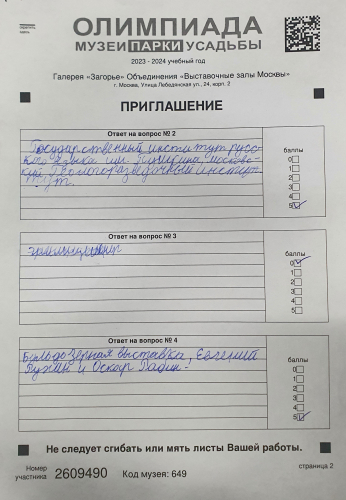 ОЛИМПИАДА
МУЗЕИ ПАРКИ УСАДЬБЫ
2023 - 2024 учебный год
Галерея «Загорье» Объединения «Выставочные залы Москвы»
г. Москва, Улица Лебедянская ул., 24, корп. 2
ПРИГЛАШЕНИЕ
Ответ на вопрос № 2
баллы
Государственный институт русс-
кого языка им. Пушкина, Московс-
кий геологоразведочный инстит
ут.
0
1
2
3
4
5
Ответ на вопрос № 3
баллы
0
1
2
3
4
5
Ответ на вопрос № 4
баллы
Бульдозерная выставка, Евгений
Рухин и Оскар Рабин.
0
1
2
3
4
5
Не следует сгибать или мять листы Вашей работы.
Номер участника 2609490 Код музея: 649
страница 2